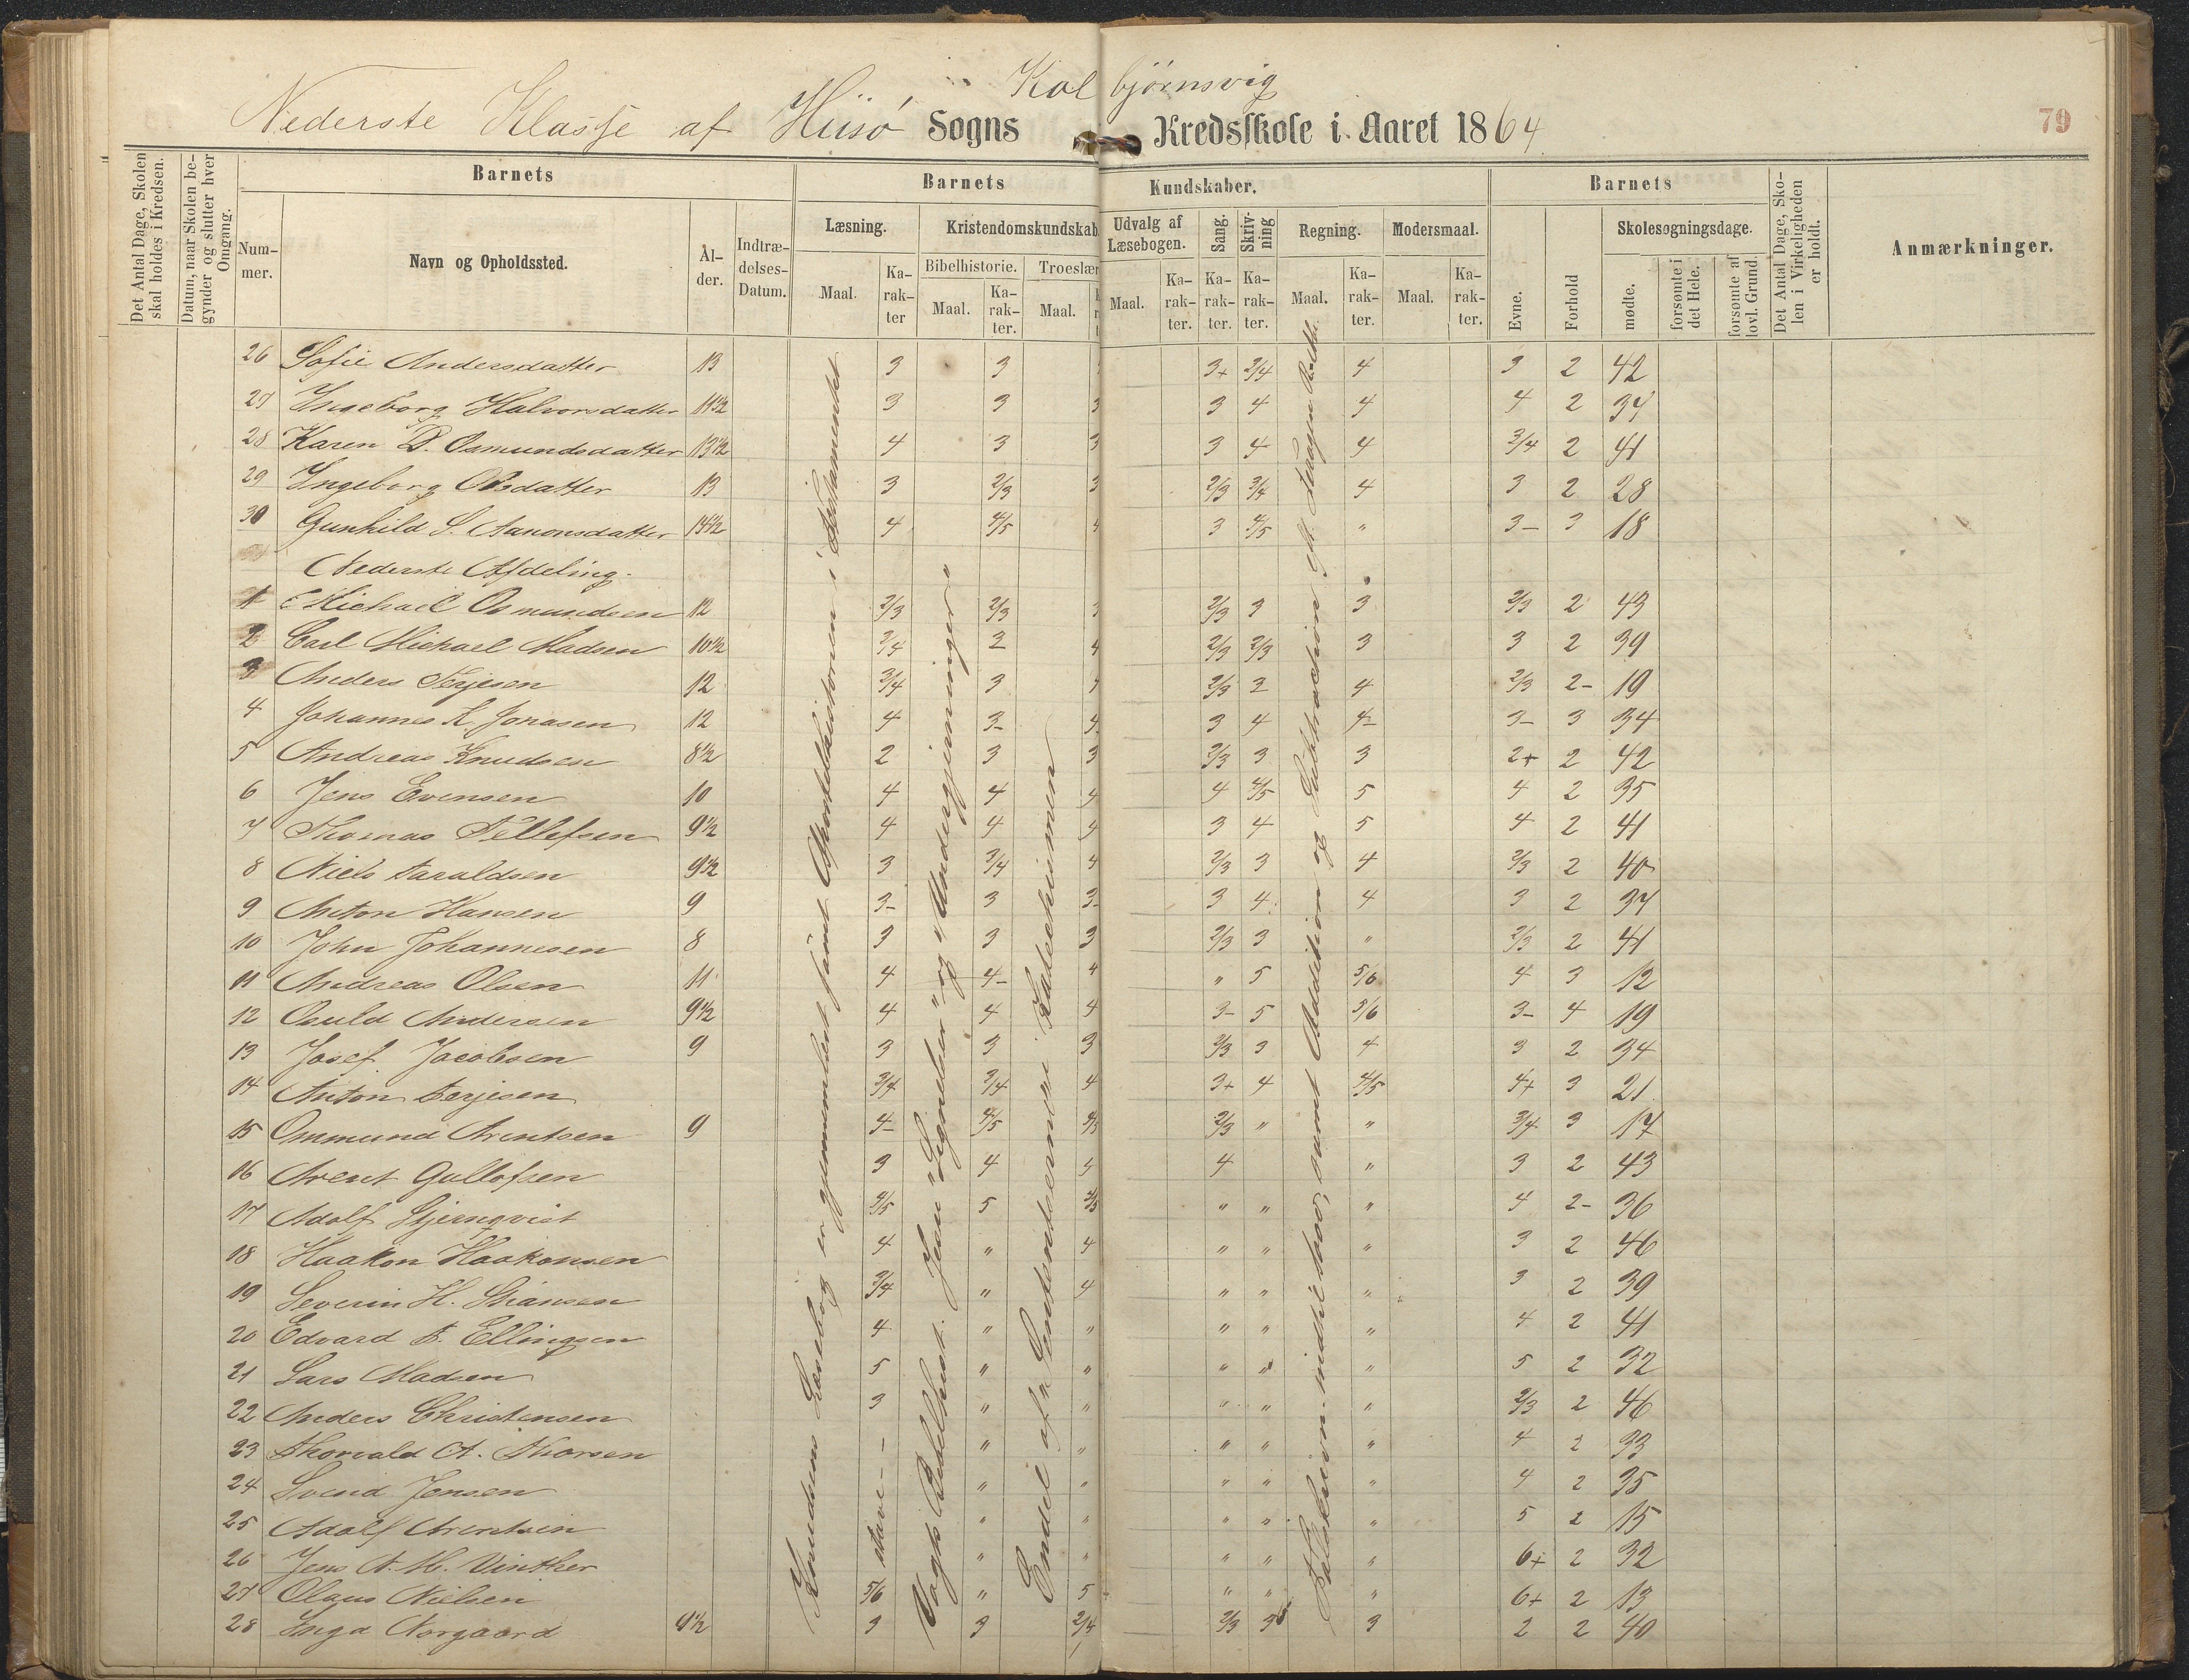 Kolbjörnsvig
Nederste Klasse af Hiisö Sogns Kredsskole i Aaret 1864
79
Det Antal Dage, Skolen skal holdes i Kredsen.
Datum, naar Skolen begynder og slutter hver Omgang.
Barnets
Barnets Kundskaber.
Barnets
Det Antal Dage, Skolen i Virkeligheden er holdt.
Anmærkninger.
Nummer.
Navn og Opholdssted.
Alder.
Indtrædelses-Datum.
Læsning.
Kristendomskundskab.
Udvalg af Læsebogen.
Sang.
Skrivning
Regning.
Modersmaal.
Evne.
Forhold
Skolesøgningsdage.
Bibelhistorie.
Troeslær
Maal.
Karakter
mødte.
forsømte i det Hele.
forsømte af lovl. Grund.
26 Sofie Andersdatter 13 3 3 3+ 3/4 4 3 2 42
27 Ingeborg Halvorsdatter 11½ 3 3 3 3 4 4 4 2 34
28 Karen D. Osmundsdatter 13½ 4 3 3 3 4 4 3/4 2 41
29 Ingeborg Olsdatter 13 3 2/3 3 2/3 3/4 4 3 2 28
30 Gunhild S. Aanonsdatter 14½ 4 4/5 4 3 4/5 " 3- 3 18
Nederste Afdeling.
1 Michael Osmundsen 12 2/3 2/3 3 2/3 3 3 2/3 2 43
2 Carl Michael Madsen 10½ 3/4 2 4 2/3 2/3 3 3 2 39
3 Anders Terjesen 12 3/4 3 2/3 2 4 2/3 2- 19
4 Johannes K. Jonasen 12 4 3- 4 3 4 4- 3- 3 34
5 Andreas Knudsen 8½ 2 3 3 2/3 3 3 2+ 2 42
6 Jens Evensen 10 4 4 4 4 4/5 5 4 2 35
7 Thomas Tellefsen 9½ 4 4 4 3 4 5 4 2 41
8 Niels Taraldsen 9½ 3 3/4 4 2/3 3 4 2/3 2 40
9 Anton Hansen 9 3- 3 3- 3 4 4 3 2 37
10 John Johannesen 8 3 3 3 2/3 3 " 2/3 2 41
11 Andreas Olsen 11 4 4- 4 " 5 5/6 4 3 12
12 Osuld Andersen 9½ 4 4 4 3- 5 5/6 3- 4 19
13 Josef Jacobsen 9 3 3 3 2/3 3 4 3 2 34
14 Anton Terjesen 3/4 3/4 4 3+ 4 4/5 4+ 3 21
15 Ommund Arentsen 9 4- 4/5 4/5 2/3 " " 3/4 3 17
16 Arent Gullofsen 3 4 4 4 " 3 2 43
17 Adolf Stjernqvist 4/5 5 4/5 " " " 4 2- 36
18 Haakon Haakonsen 4 " 4 " " " 3 2 46
19 Severin H. Stiansen 3/4 " 4 " " " 3 2 39
20 Edvard T. Ellingsen 4 " " " " " 4 2 41
21 Lars Madsen 5 " " " " " 5 2 32
22 Anders Christensen 3 " " " " " 2/3 2 46
23 Thorvald A. Thorsen - " " " " " 4 2 33
24 Svend Jensen " " " " " 4 2 35
25 Adolf Arentsen " " " " " 5 2 15
26 Jens A. M. Vinther stave " " " " " 6+ 2 32
27 Olaus Nielsen 5/6 " 5 " " " 6+ 2 13
28 Inga Norgaard 9½ 3 3 3/4 2/3 3 3 2 2 40
Knudsens Læsebog er gjennemlæst samt Apostelhistorien i Testamentet
Vogts Bibelhist. Jesu "Lignelser" og "Undergjerninger"
Endel af Sententserne i Katechismen
Talskrivn. indtil 1000, samt Addition og Subtraction